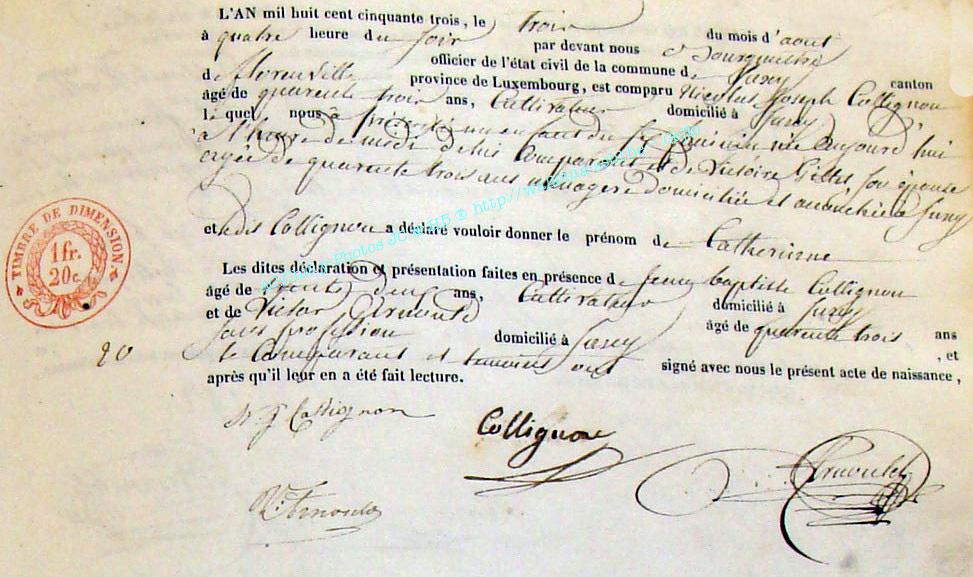 L'AN mil huit cent cinquante trois, le trois du mois d'aout
à quatre heure du soir par devant nous Bourgmestre
officier de l'état civil de la commune de Jzel canton
de florenville province de Luxembourg, est comparu Nicolas Joseph Collignon
âgé de quarente trois ans, Cultivateur domicilié à
le quel nous à présenté un enfant du sexe feminin née aujourd'hui
à l'heure de midi de lui Comparant et de Victoire Gillet, son épouse
agée de quarente trois ans menagere domiciliée et accouchée à
et le dit Collignon a déclaré vouloir donner le prénom de Catherinne
Les dites déclaration et présentation faites en présence de Jean baptiste Collignon
âgé de trente deux ans, Cultivateur domicilié à
et de Victor âgé de quarente trois ans
sans profession domicilié à , et
le Comparant et temoins ont signé avec nous le présent acte de naissance,
après qu'il leur en a été fait lecture.
TIMBRE DE DIMENSION
1 fr.
20 c.
20
N J Collignon
Collignon